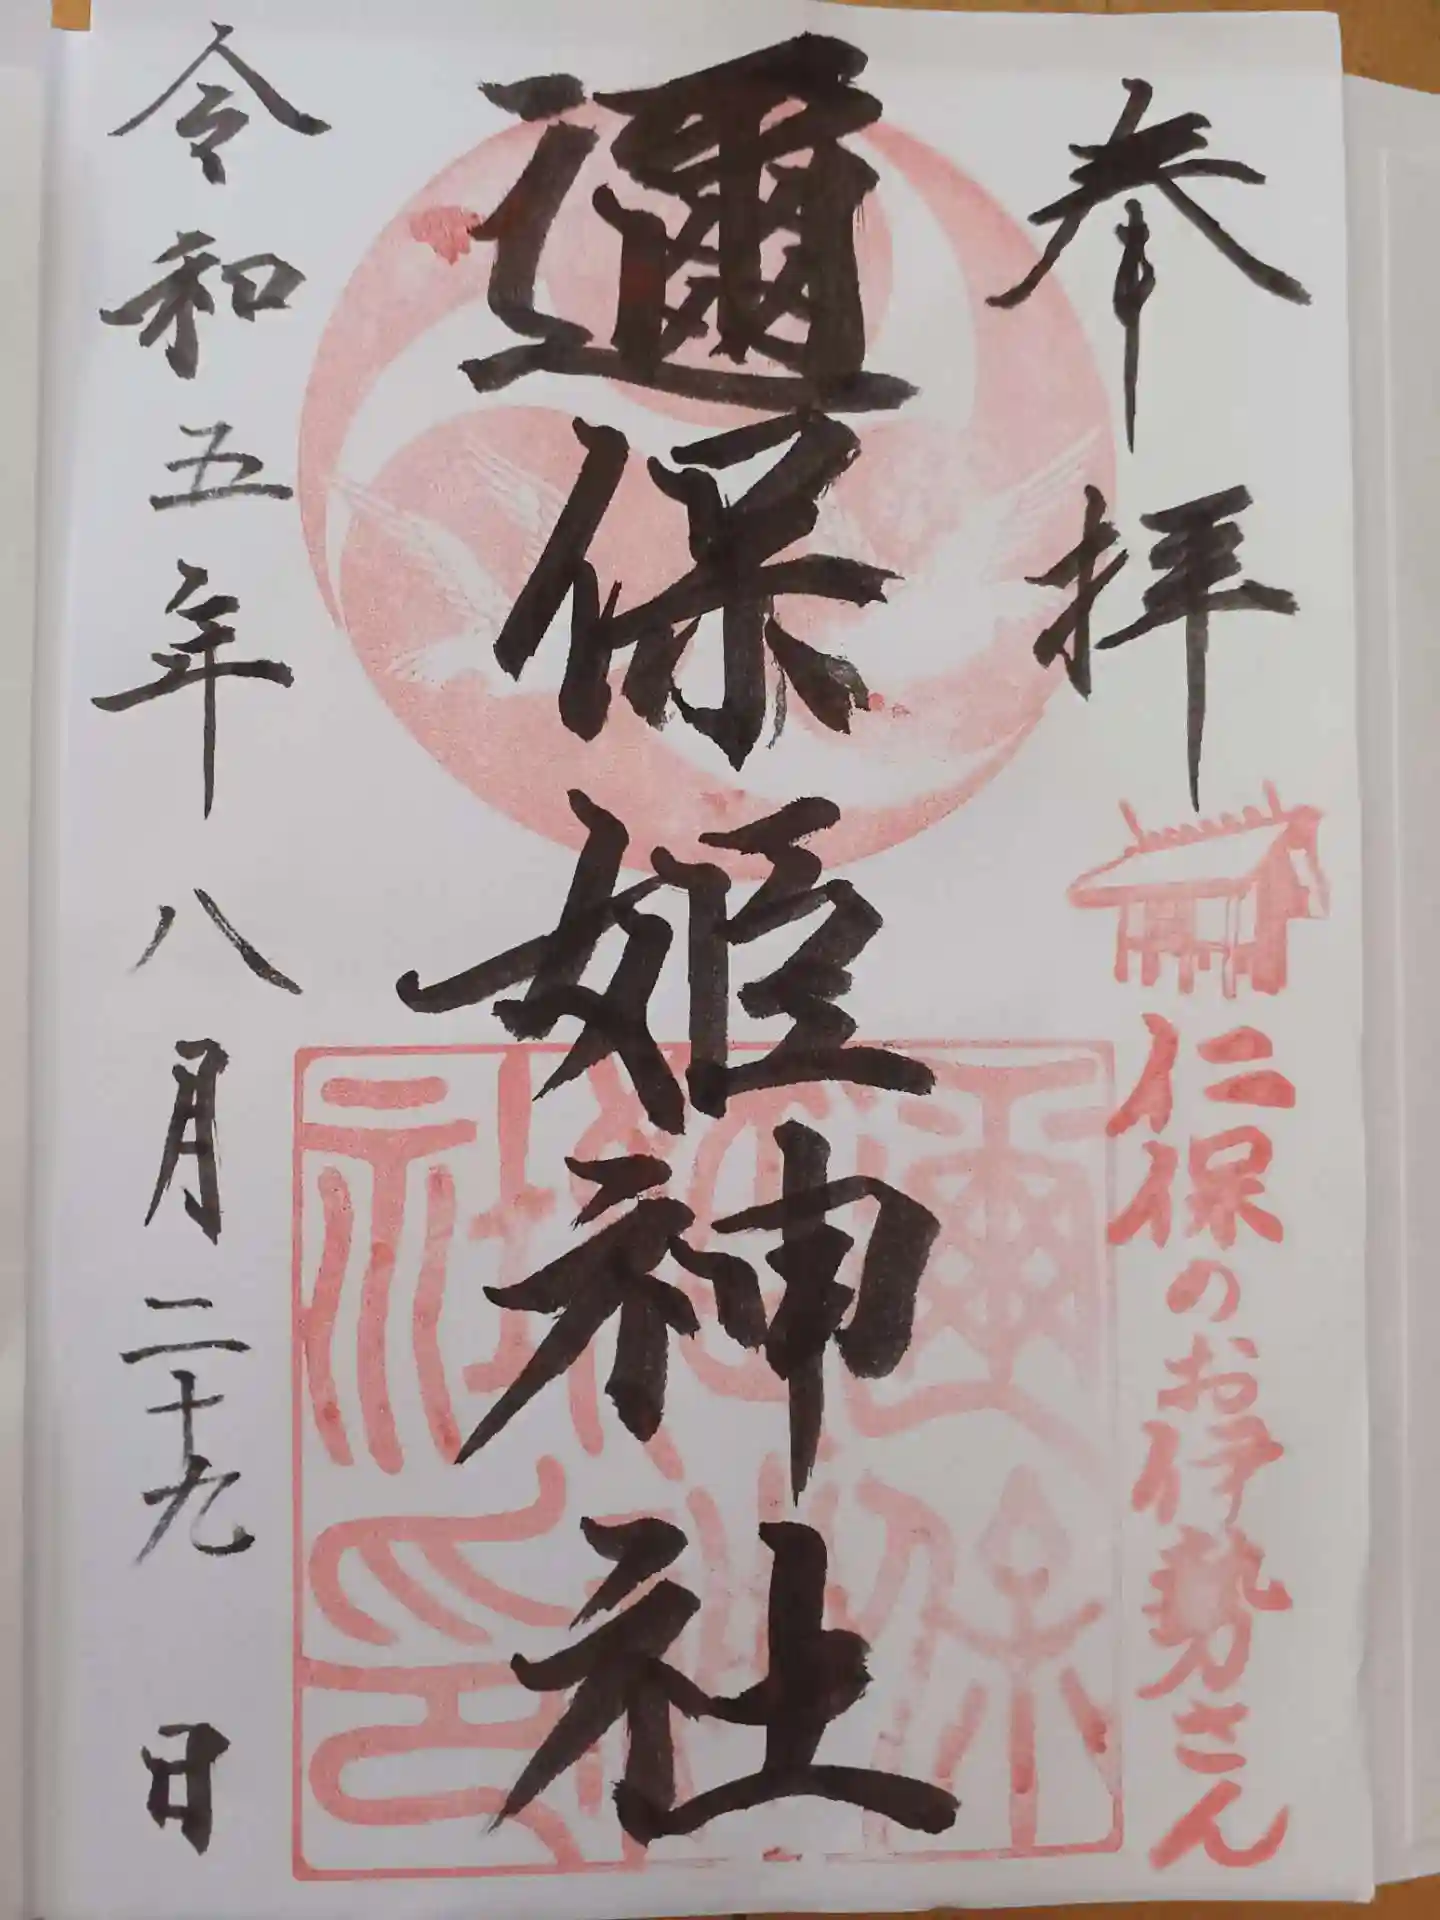 奉拝
仁保のお伊勢さん
邇保姫神社
令和五年八月二十九日